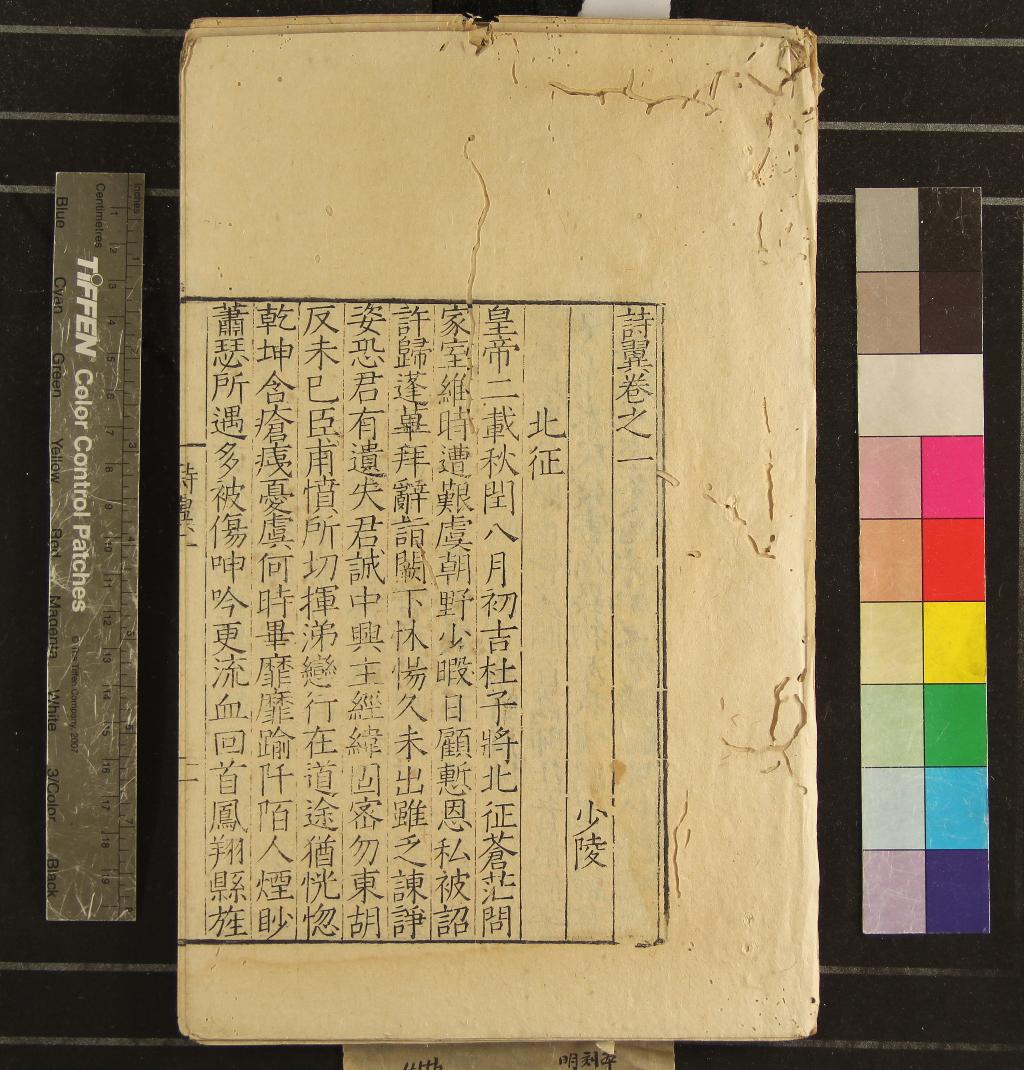 詩翼卷之一
少陵
北征
皇帝二載秋閏八月初吉杜子將北征蒼茫問
家室維時遭艱虞朝野少暇日顧慙恩私被詔
許歸蓬蓽拜辭詣闕下怵惕久未出雖乏諫諍
姿恐君有遺失君誠中興主經緯固密勿東胡
反未已臣甫憤所切揮涕戀行在道途猶恍惚
乾坤含瘡痍憂虞何時畢靡靡踰阡陌人煙眇
蕭瑟所遇多被傷呻吟更流血回首鳳翔縣旌
詩翼一
二
Inches
Centimetres
1 2 3 4 5 6 7 8 9 10 11 12 13 14 15 16 17 18 19
TIFFEN Color Control Patches
© The Tiffen Company, 2007
Blue Cyan Green Yellow Red Magenta White 3/Color Black
明刻本